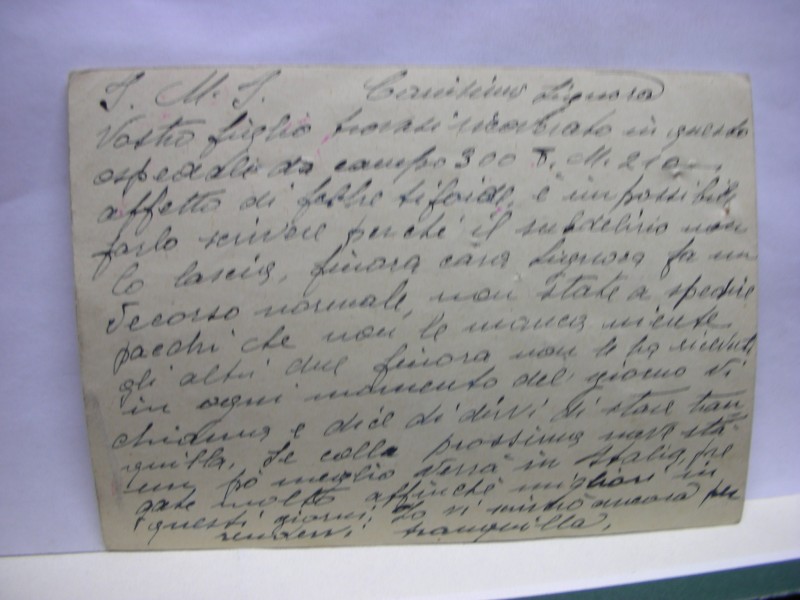 J. M. J. Carissima Signora
Vostro figlio trovasi ricoverato in questo
ospedale da campo 300 P. M. 210
affetto di febbre tifoide, è impossibile
farlo scrivere perché il subdelirio non
lo lascia, finora cara Signora fa un
decorso normale, non state a spedire
pacchi che non le manca niente
gli altri due finora non le ha ricevuti
in ogni momento del giorno vi
chiama e dice di dirvi di stare tran
quilla. Se colla prossima nave sta
un pò meglio verrà in Italia, pre
gate molto affinché migliori in
questi giorni. Io vi scriverò ancora per
rendervi tranquilla.